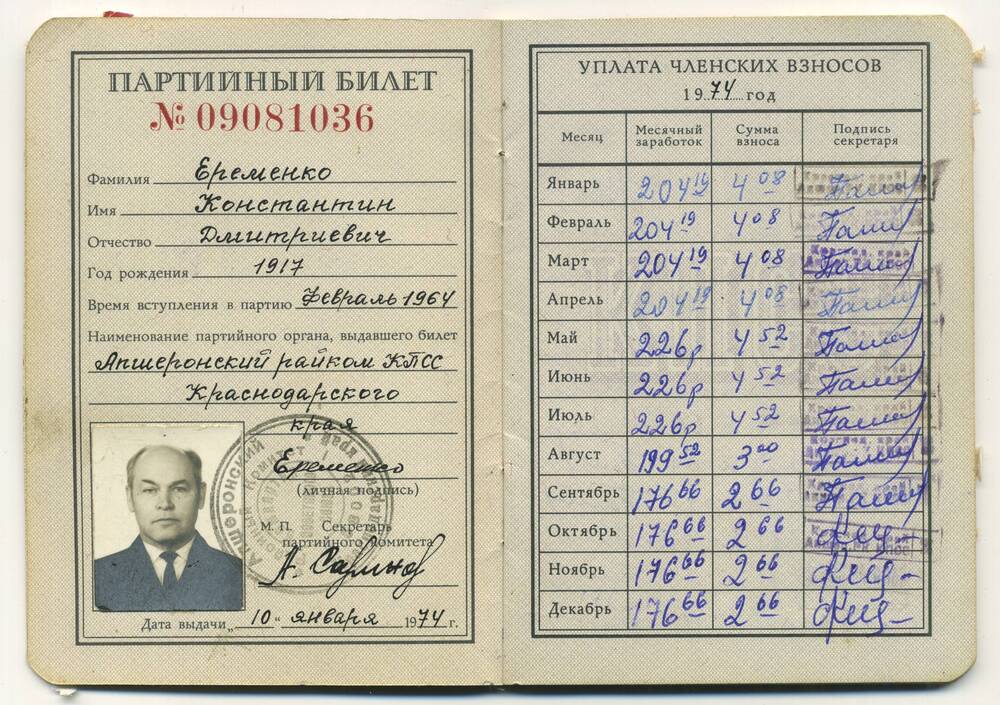 ПАРТИЙНЫЙ БИЛЕТ
№ 09081036
Фамилия Еременко
Имя Константин
Отчество Дмитриевич
Год рождения 1917
Время вступления в партию Февраль 1964
Наименование партийного органа, выдавшего билет
Апшеронский райком КПСС
Краснодарского
края
Еременко
(личная подпись)
М. П. Секретарь
партийного комитета
Дата выдачи „10“ января 1974 г.
УПЛАТА ЧЛЕНСКИХ ВЗНОСОВ
1974 год
Месяц Месячный заработок Сумма взноса Подпись секретаря
Январь 204 19 4 08
Февраль 204 19 4 08
Март 204 19 4 08
Апрель 204 19 4 08
Май 226р 4 52
Июнь 226р 4 52
Июль 226р 4 52
Август 199 52 3 00
Сентябрь 176 66 2 66
Октябрь 176 66 2 66
Ноябрь 176 66 2 66
Декабрь 176 66 2 66